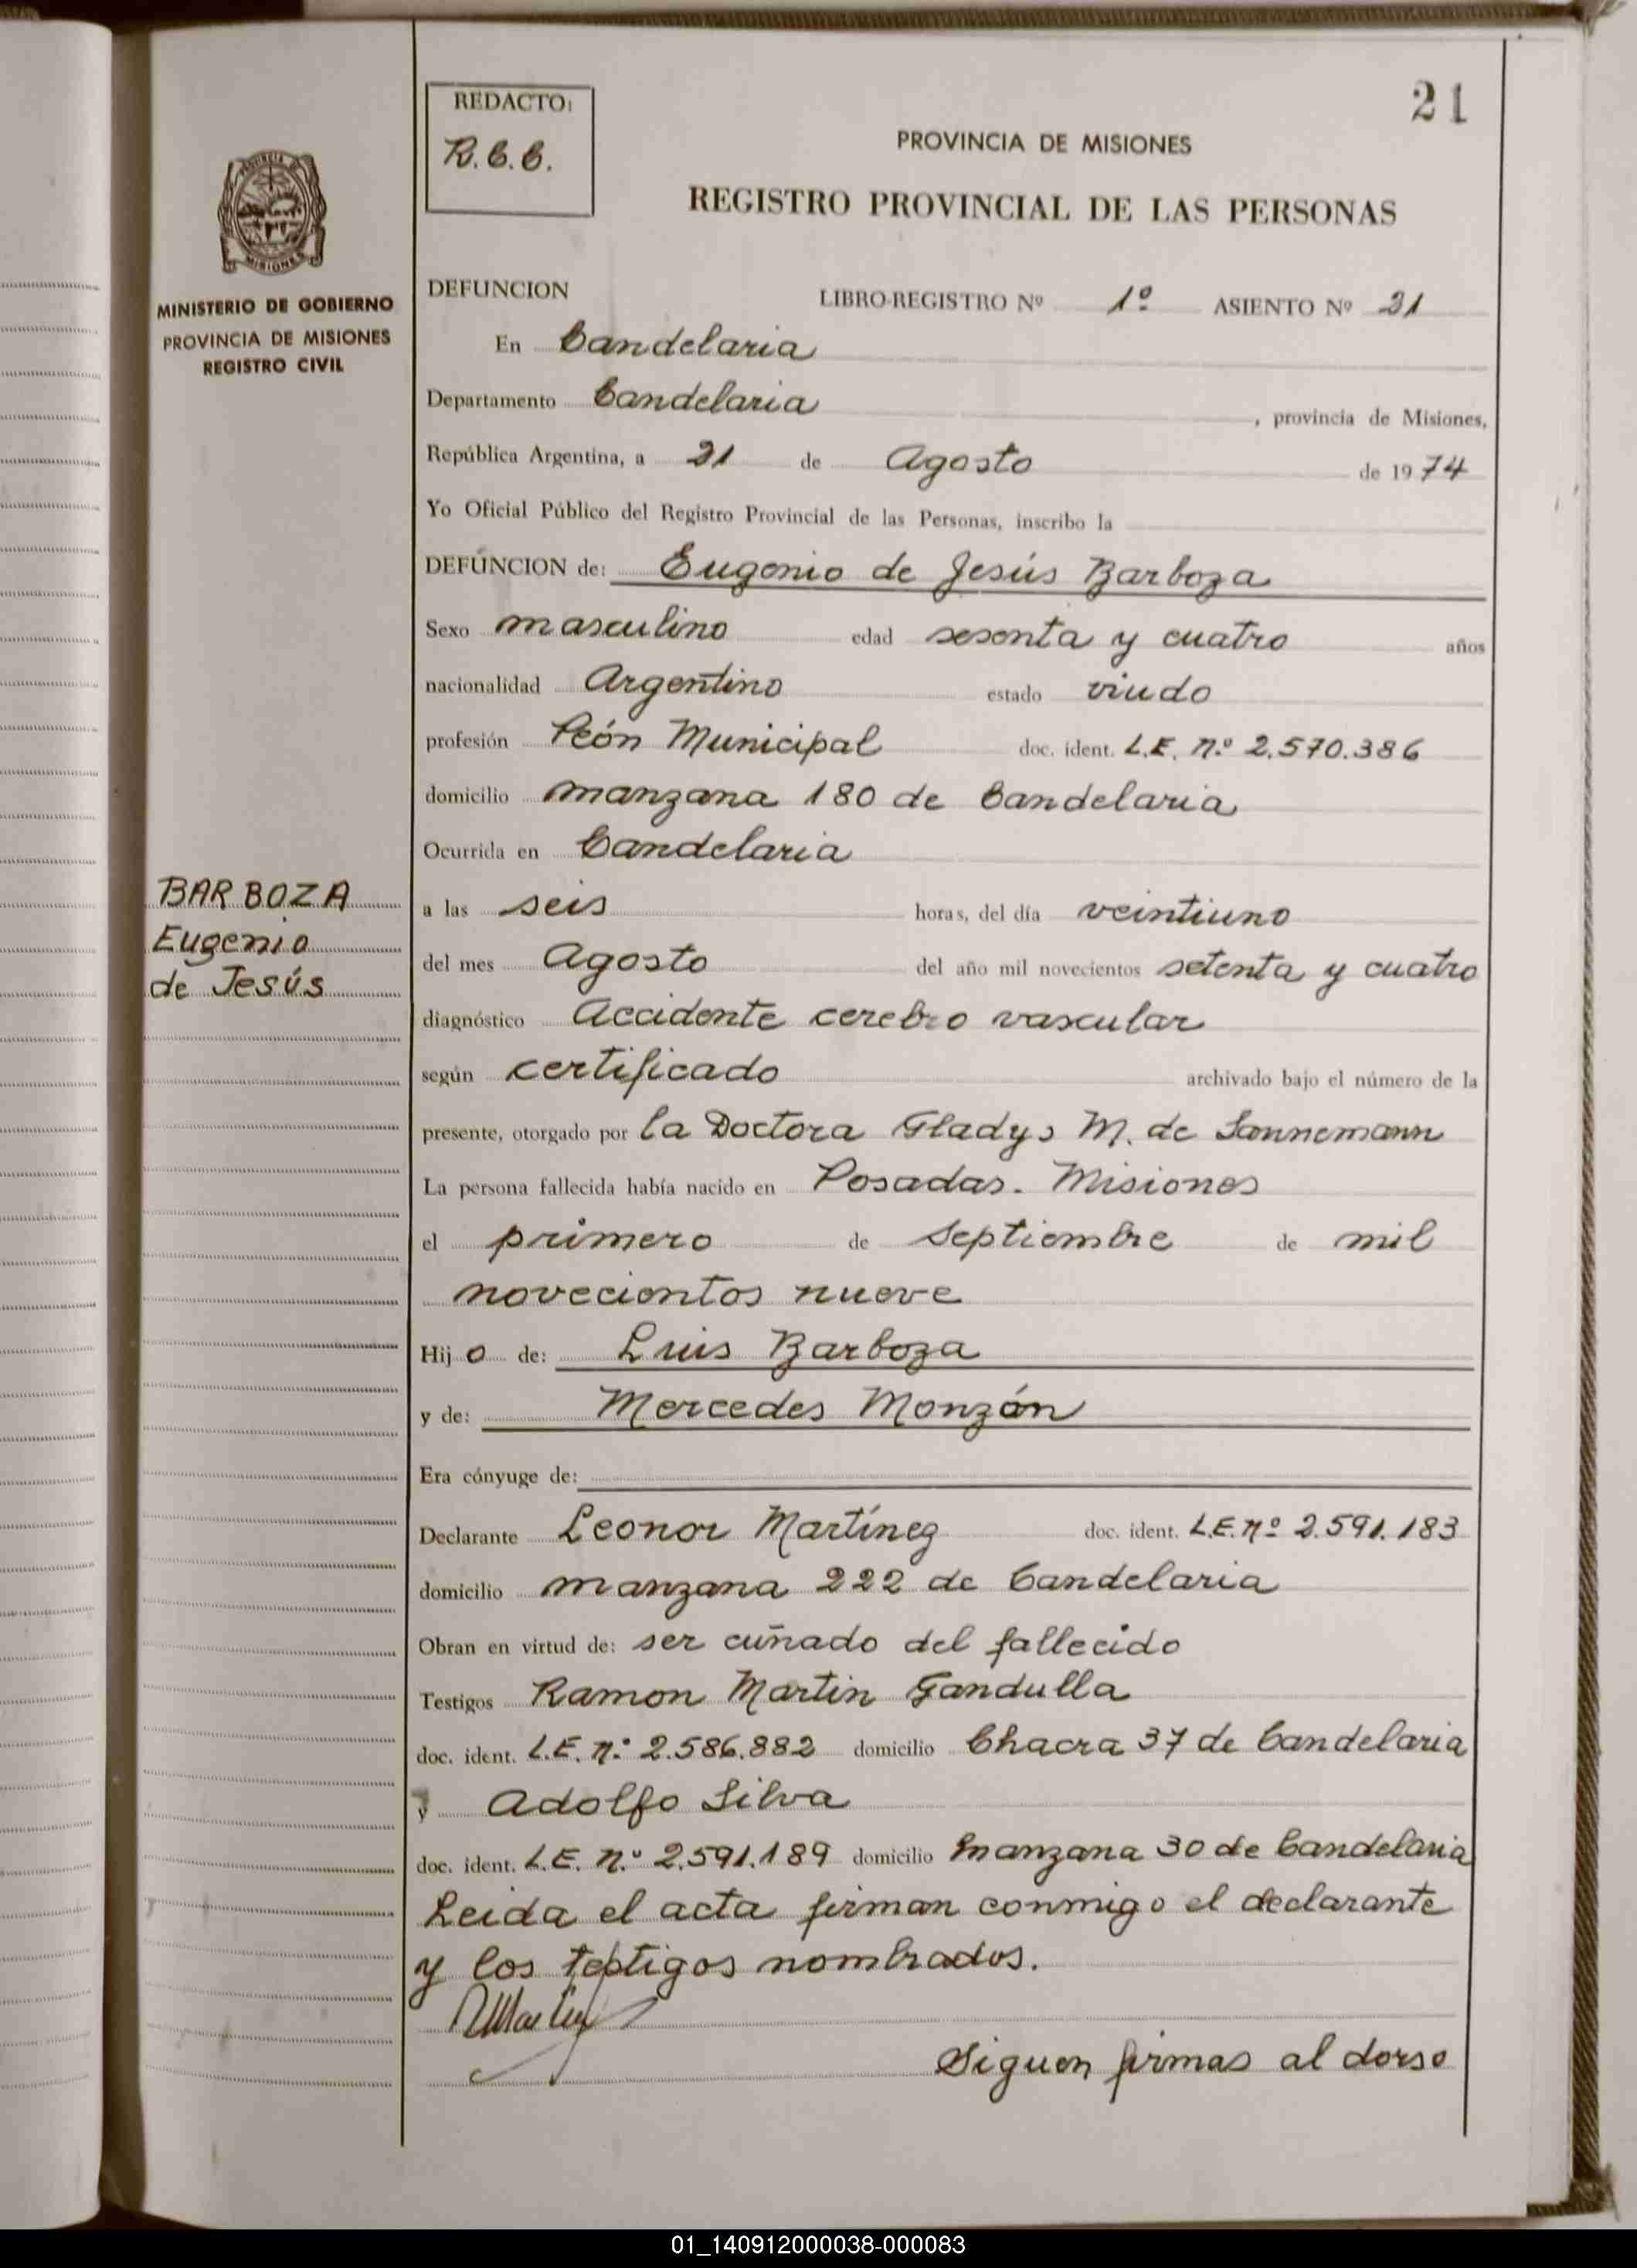 21
REDACTO:
R.C.C.
PROVINCIA DE MISIONES
REGISTRO PROVINCIAL DE LAS PERSONAS
PROVINCIA DE
MISIONES
MINISTERIO DE GOBIERNO
PROVINCIA DE MISIONES
REGISTRO CIVIL
DEFUNCION LIBRO-REGISTRO Nº 1º ASIENTO Nº 21
En Candelaria
Departamento Candelaria, provincia de Misiones,
República Argentina, a 21 de Agosto de 1974
Yo Oficial Público del Registro Provincial de las Personas, inscribo la
DEFUNCION de: Eugenio de Jesús Barboza
Sexo masculino edad sesenta y cuatro años
nacionalidad Argentino estado viudo
profesión Peón Municipal doc. ident. L.E. n.º 2.570.386
domicilio manzana 180 de Candelaria
Ocurrida en Candelaria
BARBOZA
Eugenio
de Jesús
a las seis horas, del día veintiuno
del mes Agosto del año mil novecientos setenta y cuatro
diagnóstico Accidente cerebro vascular
según certificado archivado bajo el número de la
presente, otorgado por la Doctora Gladys M. de Sannemann
La persona fallecida había nacido en Posadas. Misiones
el primero de septiembre de mil
novecientos nueve
Hijo de: Luis Barboza
y de: Mercedes Monzón
Era cónyuge de:
Declarante Leonor Martínez doc. ident. L.E. nº 2.591.183
domicilio manzana 222 de Candelaria
Obran en virtud de: ser cuñado del fallecido
Testigos Ramon Martin Gandulla
doc. ident. L.E. n.º 2.586.882 domicilio Chacra 37 de Candelaria
y Adolfo Silva
doc. ident. L.E. n.º 2.591.189 domicilio manzana 30 de Candelaria
Leida el acta firman conmigo el declarante
y los testigos nombrados.
Siguen firmas al dorso
01_140912000038-000083